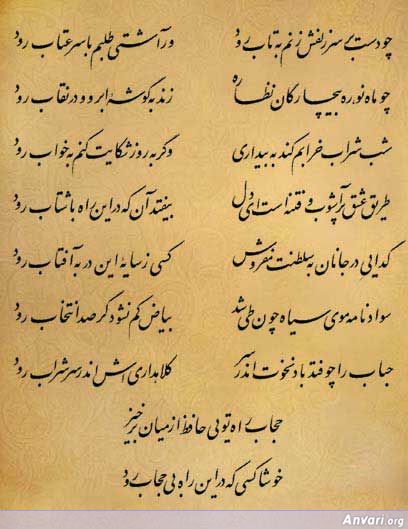 چو دست بر سر زلفش زنم به تاب رود ور آشتی طلبم با سر عتاب رود
چو ماه نو ره بیچارگان نظاره زند به گوشه ابرو و در نقاب رود
شب شراب خرابم کند به بیداری وگر به روز شکایت کنم به خواب رود
طریق عشق پرآشوب و فتنه است ای دل بیفتد آن که در این راه با شتاب رود
گدایی در جانان به سلطنت مفروش کسی ز سایه این در به آفتاب رود
سواد نامه موی سیاه چون طی شد بیاض کم نشود گر صد انتخاب رود
حباب را چو فتد باد نخوت اندر سر کلاه داری اش اندر سر شراب رود
حجاب راه تویی حافظ از میان برخیز
خوشا کسی که در این راه بی حجاب رود
Anvari.org